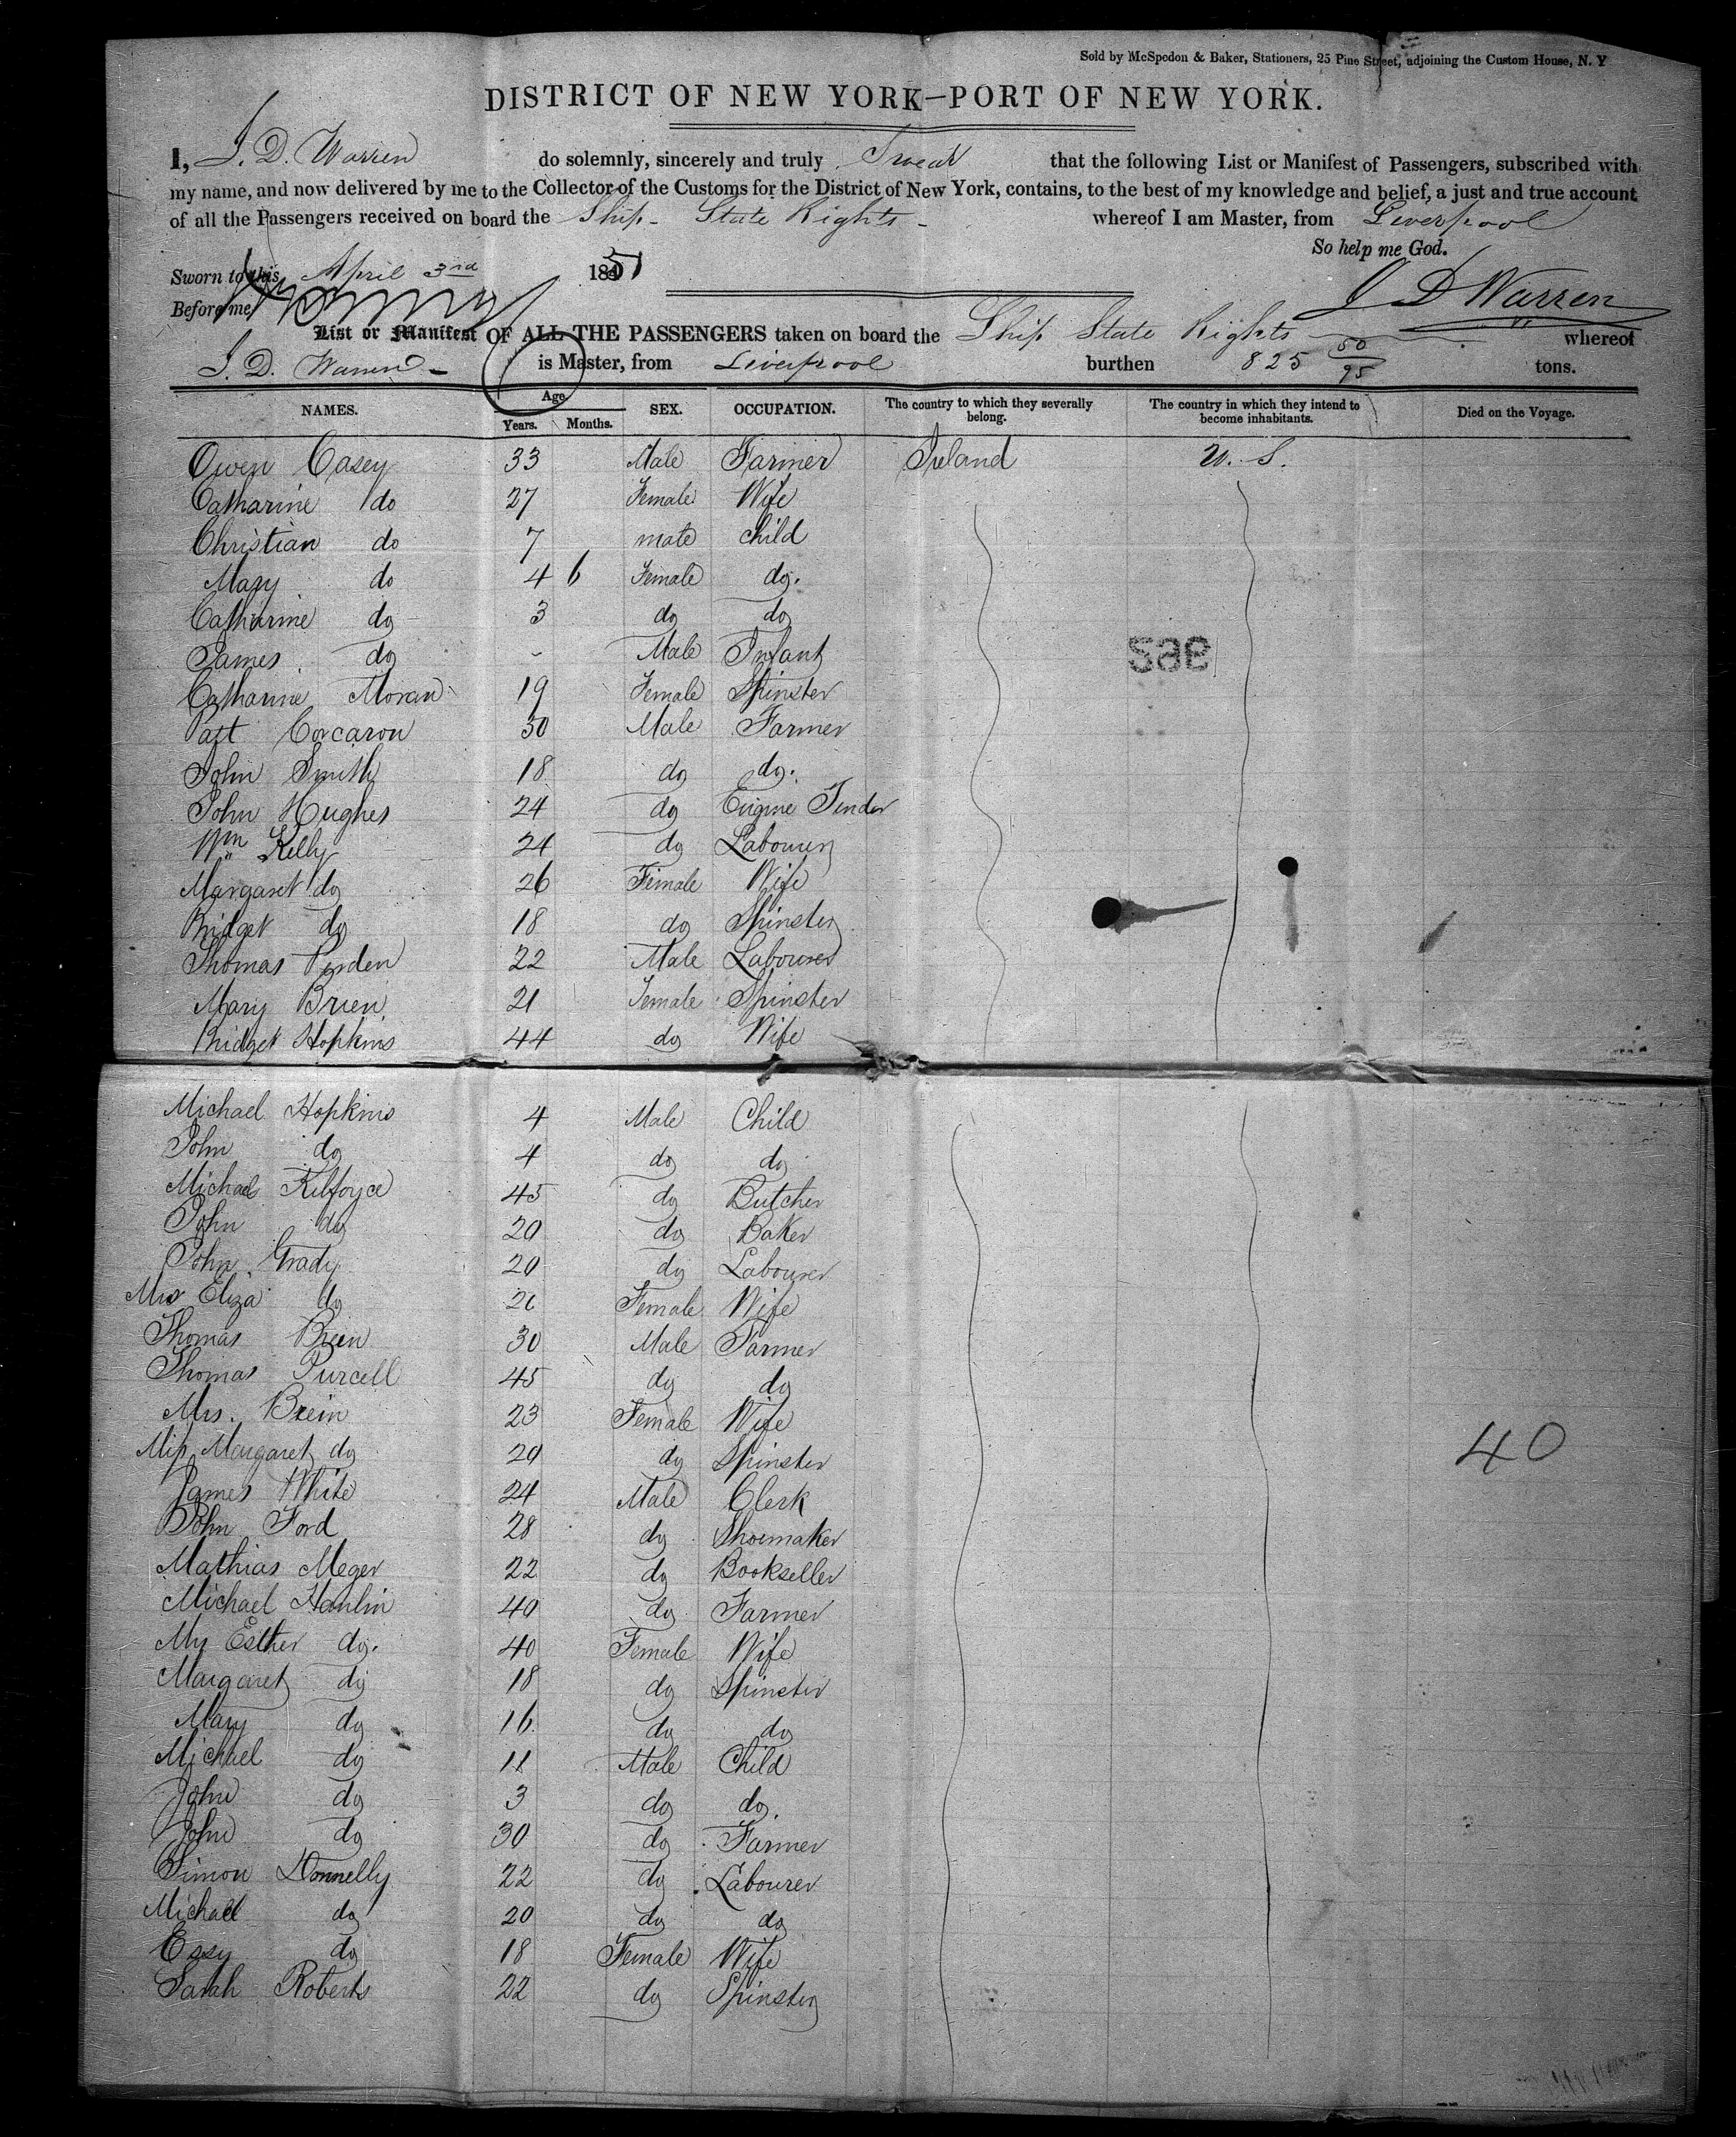 Sold by McSpedon & Baker, Stationers, 25 Pine Street, adjoining the Custom House, N. Y
DISTRICT OF NEW YORK—PORT OF NEW YORK.
I, J. D. Warren do solemnly, sincerely and truly Swear that the following List or Manifest of Passengers, subscribed with
my name, and now delivered by me to the Collector of the Customs for the District of New York, contains, to the best of my knowledge and belief, a just and true account
of all the Passengers received on board the Ship - State Rights - whereof I am Master, from Liverpool
So help me God.
Sworn to this April 3rd 1851
J D Warren
Before me
List or Manifest OF ALL THE PASSENGERS taken on board the Ship State Rights whereof
J. D. Warren - is Master, from Liverpool burthen 825 50/95 tons.
NAMES. Age Years. Months. SEX. OCCUPATION. The country to which they severally belong. The country in which they intend to become inhabitants. Died on the Voyage.
Owen Casey 33 Male Farmer Ireland U. S.
Catharine do 27 Female Wife
Christian do 7 male child
Mary do 4 6 Female do.
Catharine do 3 do do
James do - Male Infant
Catharine Moran 19 Female Spinster
Patt Corcaron 30 Male Farmer
John Smith 18 do do.
John Hughes 24 do Engine Tender
Wm Kelly 24 do Labourer
Margaret do 26 Female Wife
Bridget do 18 do Spinster
Thomas Perden 22 Male Labourer
Mary Brien 21 Female Spinster
Bridget Hopkins 44 do Wife
Michael Hopkins 4 Male Child
John do 4 do do
Michael Kilforyce 45 do Butcher
John do 20 do Baker
John Grady 20 do Labourer
Mrs Eliza do 26 Female Wife
Thomas Brein 30 Male Farmer
Thomas Purcell 45 do do
Mrs. Brein 23 Female Wife
Miss Margaret do 20 do Spinster
James White 24 Male Clerk
John Ford 28 do Shoemaker
Mathias Meger 22 do Bookseller
Michael Hanlin 40 do Farmer
Mrs Esther do. 40 Female Wife
Margaret do 18 do Spinster
Mary do 16 do do
Michael do 11 Male Child
John do 3 do do.
John do 30 do Farmer
Simon Donnelly 22 do Labourer
Michael do 20 do do
Essy do 18 Female Wife
Sarah Roberts 22 do Spinster
40